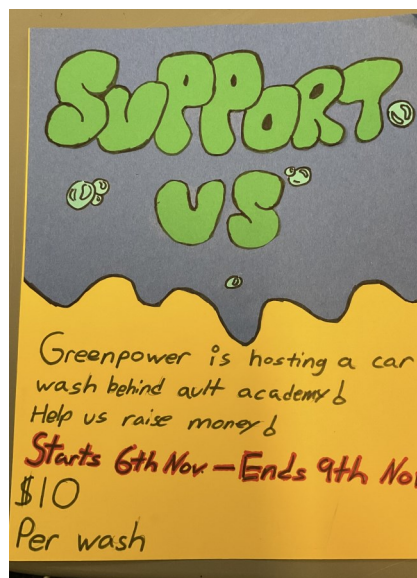 SUPPORT
US
Greenpower is hosting a car
wash behind ault academy!
Help us raise money!
Starts 6th Nov - Ends 9th Nov
$10
Per wash